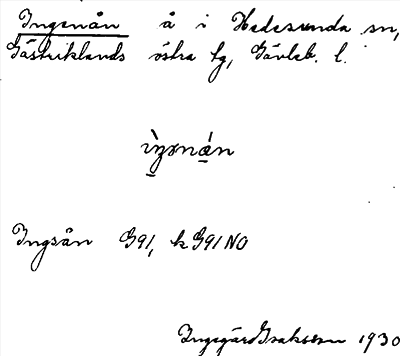 Ingsnån å i Hedesunda sn,
Gästriklands östra tg, Gävleb. l.
Ingsån G91, k G91 NO
Ingegärd Isaksson 1930